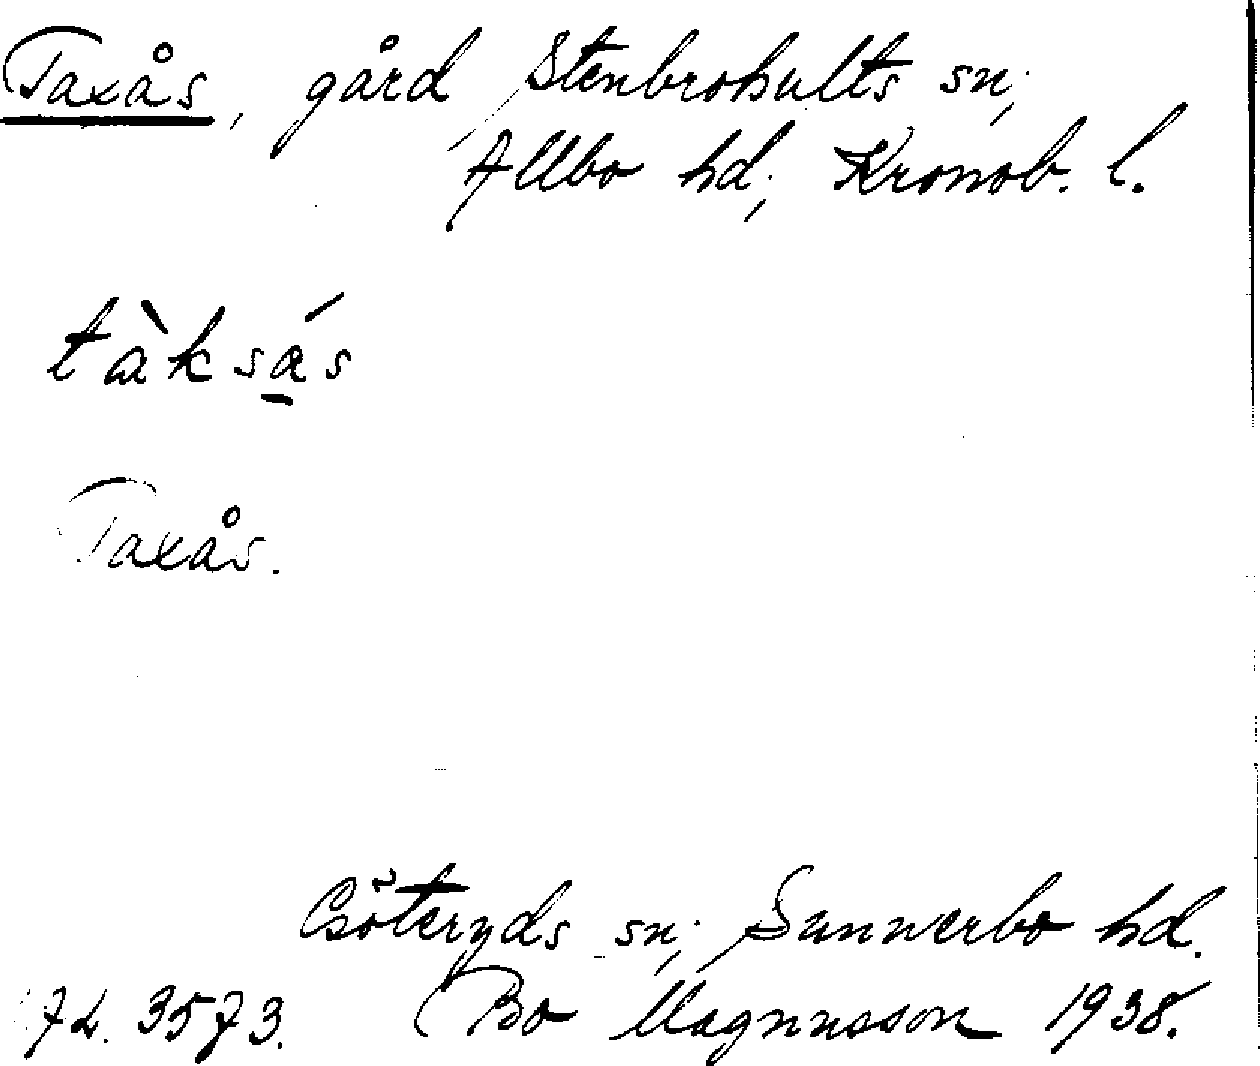 Taxås, gård, Stenbrohults sn;
Allbo hd; Kronob. l.
tàksá̱s
Taxås.
Göteryds sn; Sunnerbo hd.
3573. Bo Magnusson 1938.